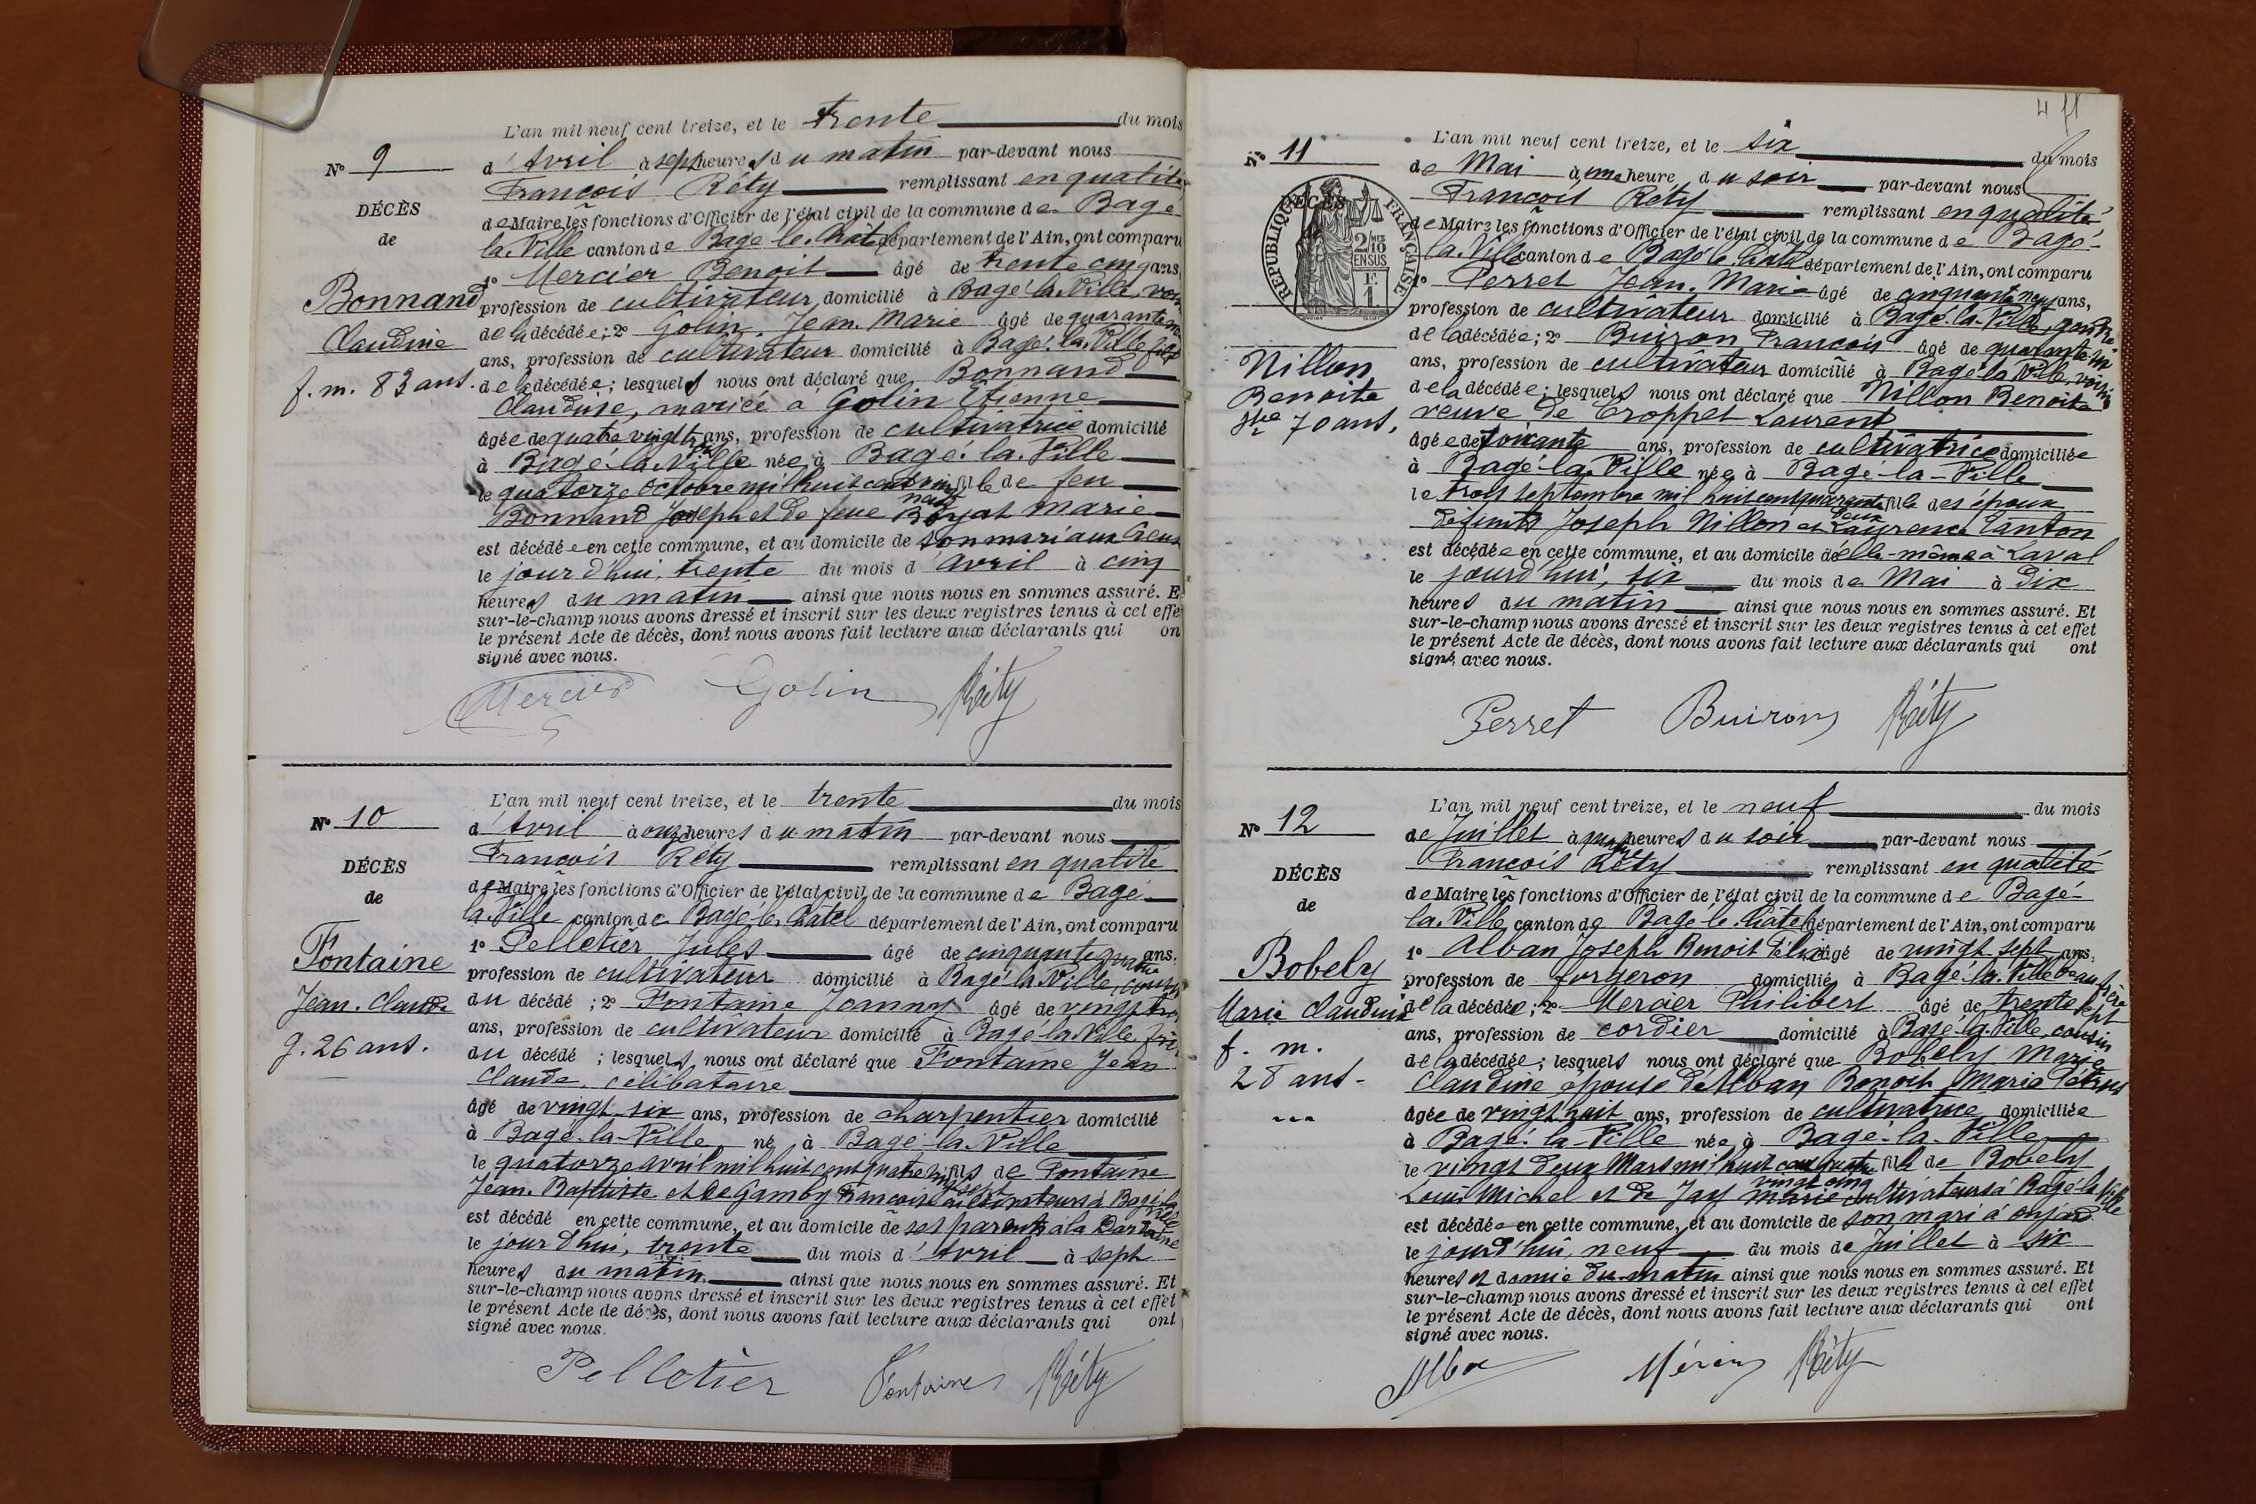 L'an mil neuf cent treize, et le trente du mois
N° 9
d'Avril à sept heures du matin par-devant nous
François Réty remplissant en qualité
DÉCÈS
de Maire les fonctions d'Officier de l'état civil de la commune de Bagé
de
la Ville canton de Bagé le Châtel département de l'Ain, ont comparu
1° Mercier Benoit âgé de trente cinq ans,
Bonnand
profession de cultivateur domicilié à Bagé la Ville, voisin
Claudine
de la décédée; 2° Golin Jean Marie âgé de quarante
ans, profession de cultivateur domicilié à Bagé la Ville fils
f. m. 83 ans.
de la décédée; lesquels nous ont déclaré que Bonnand
Claudine, mariée à Golin Etienne
âgée de quatre vingt trois ans, profession de cultivatrice domicilié
à Bagé la Ville née à Bagé la Ville
le quatorze Octobre mil huit cent vingt neuf fille de feu
Bonnand Joseph et de feue Boyat Marie
est décédée en cette commune, et au domicile de son mari aux
le jourd'hui, trente du mois d'Avril à cinq
heures du matin ainsi que nous nous en sommes assuré. E
sur-le-champ nous avons dressé et inscrit sur les deux registres tenus à cet effe
le présent Acte de décès, dont nous avons fait lecture aux déclarants qui on
signé avec nous.
Mercier Golin Réty
L'an mil neuf cent treize, et le trente du mois
N° 10
d'Avril à onze heures du matin par-devant nous
François Réty remplissant en qualité
DÉCÈS
de Maire les fonctions d'Officier de l'état civil de la commune de Bagé
de
la Ville canton de Bagé le Châtel département de l'Ain, ont comparu
1° Pelletier Jules âgé de cinquante quatre ans.
Fontaine
profession de cultivateur domicilié à Bagé la Ville, cousin
Jean Claude
du décédé; 2° Fontaine Joanny âgé de vingt trois
g. 26 ans.
ans, profession de cultivateur domicilié à Bagé la Ville frère
du décédé; lesquels nous ont déclaré que Fontaine Jean
Claude, célibataire
âgé de vingt six ans, profession de charpentier domicilié
à Bagé-la-Ville né à Bagé la Ville
le quatorze avril mil huit cent quatre vingt sept fils de Fontaine
Jean Baptiste et de Gamby Françoise cultivateurs à Bagé la Ville
est décédé en cette commune, et au domicile de ses parents à la
le jourd'hui, trente du mois d'Avril à sept
heures du matin ainsi que nous nous en sommes assuré. Et
sur-le-champ nous avons dressé et inscrit sur les deux registres tenus à cet effet
le présent Acte de décès, dont nous avons fait lecture aux déclarants qui ont
signé avec nous.
Pelletier Fontaine Réty
L'an mil neuf cent treize, et le six du mois
N° 11
de Mai à une heure du soir par-devant nous
François Réty remplissant en qualité
DÉCÈS
RÉPUBLIQUE FRANÇAISE
2/10 EN SUS
F. 1
de Maire les fonctions d'Officier de l'état civil de la commune de Bagé-
la Ville canton de Bagé le Châtel département de l'Ain, ont comparu
1° Perret Jean Marie âgé de cinquante neuf ans,
profession de cultivateur domicilié à Bagé la Ville, gendre
de la décédée; 2° Buiron François âgé de quarante
Nillon
ans, profession de cultivateur domicilié à Bagé la Ville, voisin
Benoite
de la décédée; lesquels nous ont déclaré que Nillon Benoite
Vve 70 ans.
veuve de Croppet Laurent
âgée de soixante ans, profession de cultivatrice domiciliée
à Bagé-la-Ville née à Bagé-la-Ville
le trois septembre mil huit cent quarante deux fille des époux
défunts Joseph Nillon et Laurence Canton
est décédée en cette commune, et au domicile d'elle-même à Laval
le jourd'hui, six du mois de Mai à dix
heures du matin ainsi que nous nous en sommes assuré. Et
sur-le-champ nous avons dressé et inscrit sur les deux registres tenus à cet effet
le présent Acte de décès, dont nous avons fait lecture aux déclarants qui ont
signé avec nous.
Perret Buiron Réty
L'an mil neuf cent treize, et le neuf du mois
N° 12
de Juillet à quatre heures du soir par-devant nous
François Réty remplissant en qualité
DÉCÈS
de Maire les fonctions d'Officier de l'état civil de la commune de Bagé-
de
la Ville canton de Bagé le Châtel département de l'Ain, ont comparu
1° Alban Joseph Benoit Félix âgé de vingt sept ans,
Bobely
profession de forgeron domicilié à Bagé la Ville beau frère
Marie Claudine
de la décédée; 2° Mercier Philibert âgé de trente sept
f. m.
ans, profession de cordier domicilié à Bagé la Ville, cousin
28 ans
de la décédée; lesquels nous ont déclaré que Bobely Marie
Claudine épouse d'Alban Benoit Marie Pétrus
âgée de vingt huit ans, profession de cultivatrice domiciliée
à Bagé-la-Ville née à Bagé-la-Ville
le vingt deux Mars mil huit cent quatre vingt cinq fille de Bobely
Louis Michel et de Jay Marie cultivateurs à Bagé la Ville
est décédée en cette commune, et au domicile de son mari à
le jourd'hui, neuf du mois de Juillet à six
heures et demie du matin ainsi que nous nous en sommes assuré. Et
sur-le-champ nous avons dressé et inscrit sur les deux registres tenus à cet effet
le présent Acte de décès, dont nous avons fait lecture aux déclarants qui ont
signé avec nous.
Réty